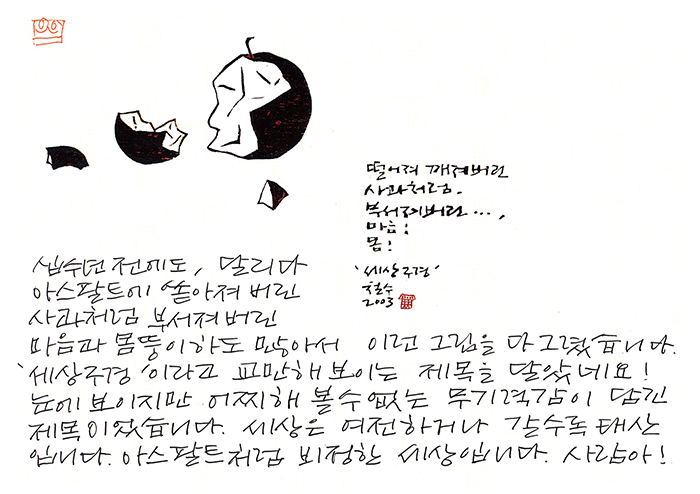 떨어져 깨져버린
사과처럼.
부서져버린 ...,
마음!
몸!
'세상구경'
철수
2003
십수년 전에도, 달리다
아스팔트에 쏟아져 버린
사과처럼 부서져버린
마음과 몸뚱이 하도 많아서 이런 그림을 다 그렸습니다.
'세상구경'이라고 교만해 보이는 제목을 달았네요!
눈에 보이지만 어찌해 볼 수 없는 무기력감이 담긴
제목이었습니다. 세상은 여전하거나 갈수록 태산
입니다. 아스팔트처럼 비정한 세상입니다. 사람아!